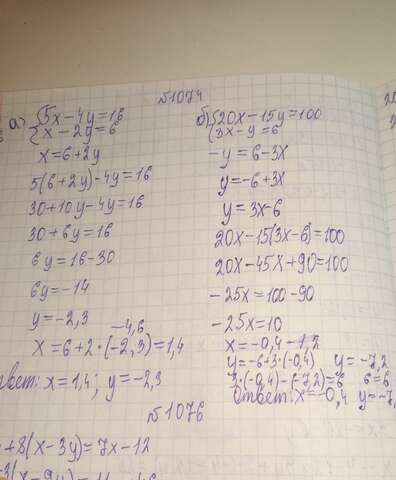 №1074
а) {5x-4y=16
x-2y=6
x=6+2y
5(6+2y)-4y=16
30+10y-4y=16
30+6y=16
6y=16-30
6y=-14
y=-2,3
-4,6
x=6+2·(-2,3)=1,4
твет: x=1,4; y=-2,3
б) {20x-15y=100
3x-y=6
-y=6-3x
y=-6+3x
y=3x-6
20x-15(3x-6)=100
20x-45x+90=100
-25x=100-90
-25x=10
x=-0,4 -1,2
y=-6+3·(-0,4) y=-7,2
3·(-0,4)-(-7,2)=6 6=6
Ответ: x=-0,4 y=-7,
№1076
+8(x-3y)=7x-12